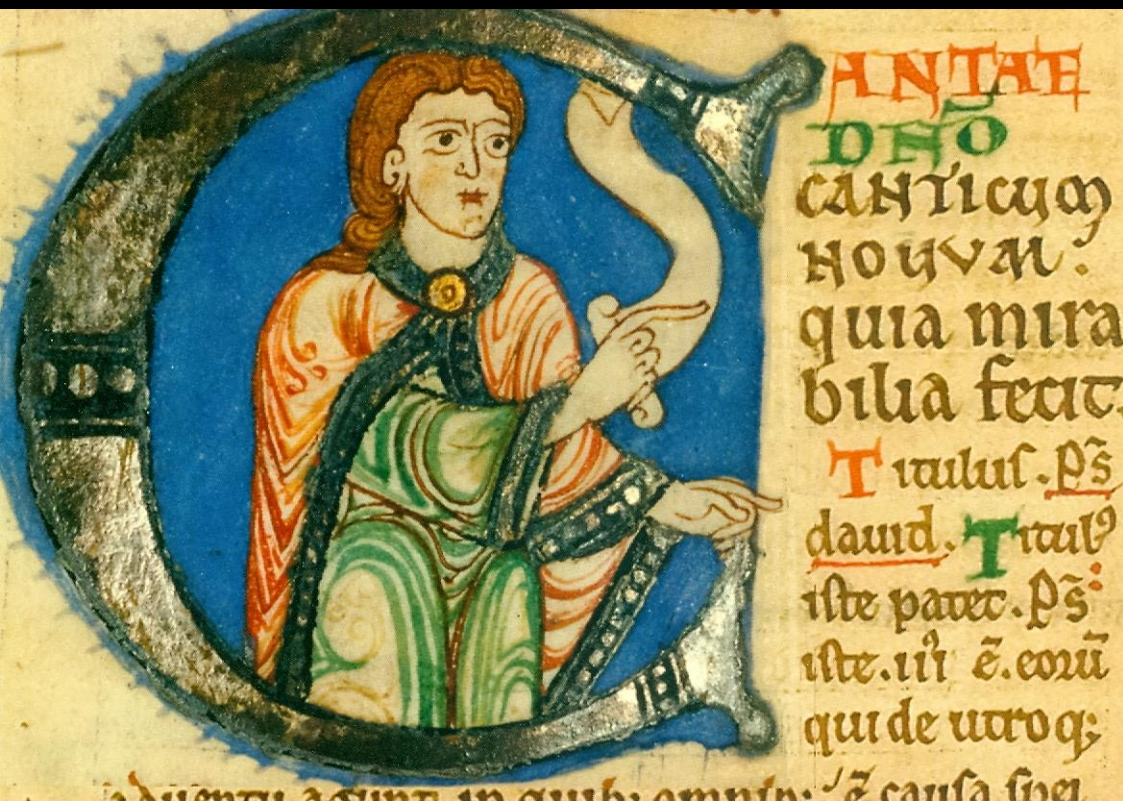 CANTATE
DÑO
CANTICUM
NOUVM.
quia mira
bilia fecit.
Titulus. p̄s
dauid. Titulꝰ
iste patet. p̄s
iste. iiiꝰ ē. eorū
qui de utroq;
aduentu agunt in quib; omnib; ē causa spei